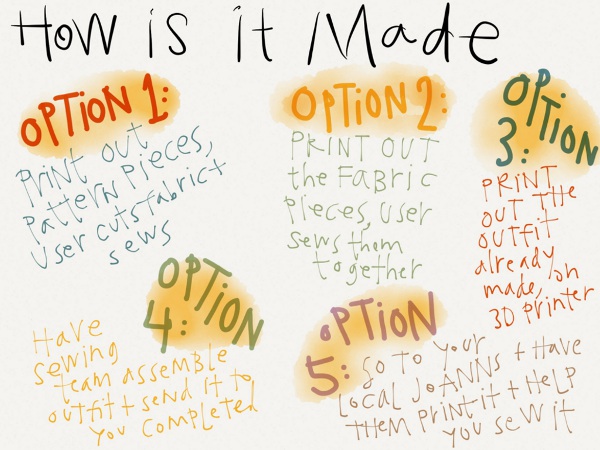 How is it Made
OPTION 1:
Print out
Pattern Pieces,
User cuts fabric +
sews
OPTION 2:
PRINT OUT
the FABRIC
Pieces, user
sews them
together
OPTION
3:
PRINT
OUT THE
OUTFIT
already
made, on
3D Printer
OPTION
4:
Have
sewing
team assemble
outfit + send it to
you completed
OPTION
5: Go to your
Local JoANNs + Have
THEM Print it + HELP
you sew it